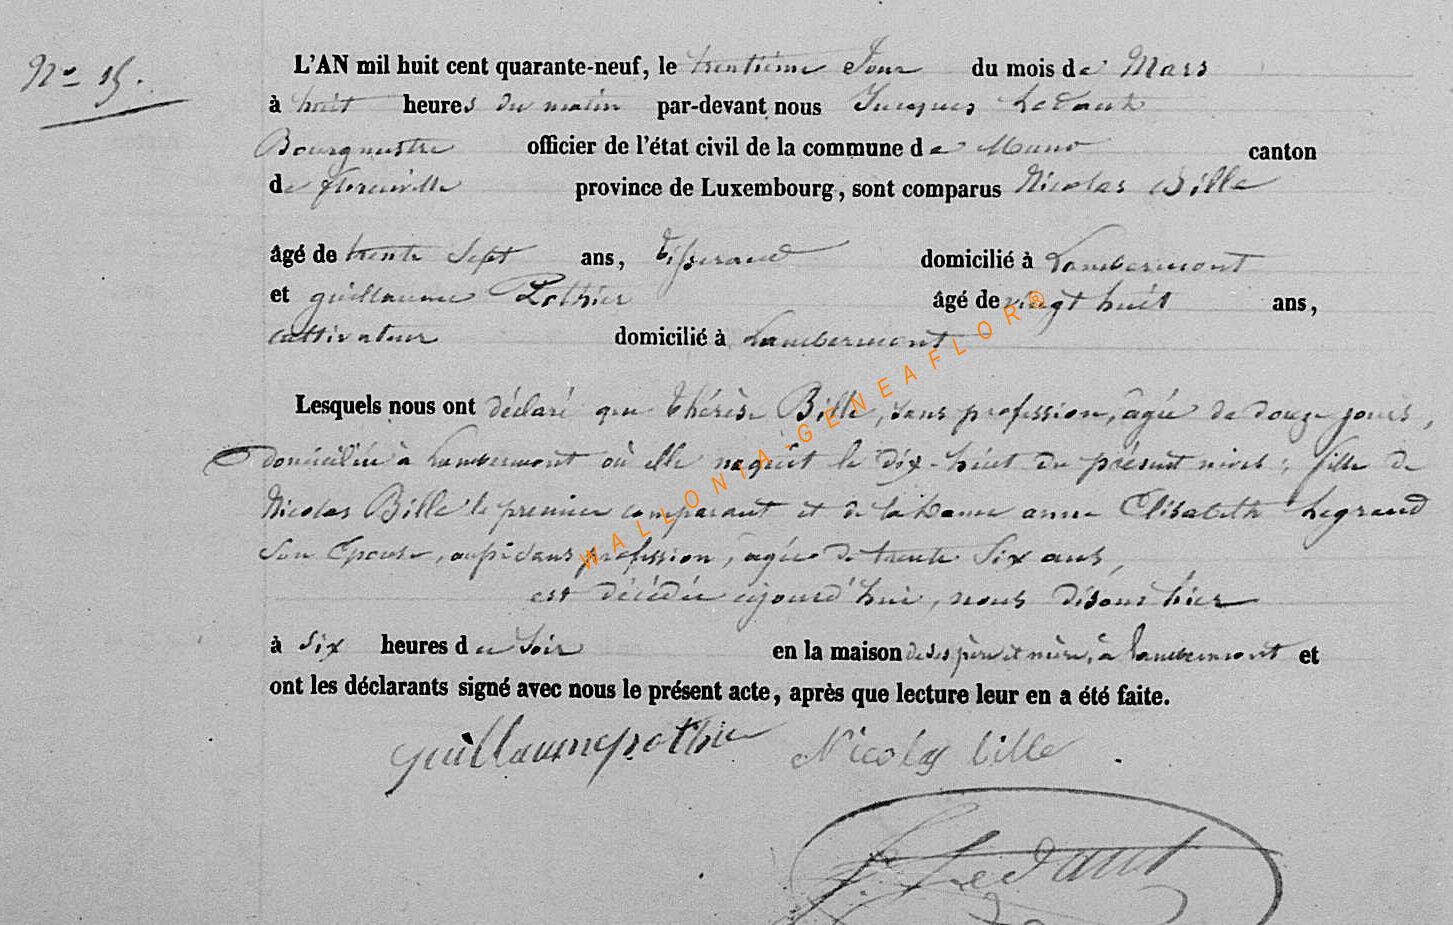 No 15.
L'AN mil huit cent quarante-neuf, le trentième Jour du mois de Mars
à huit heures du matin par-devant nous Jacques Ledant
Bourgmestre officier de l'état civil de la commune de Muno canton
de florenville province de Luxembourg, sont comparus Nicolas Bille
âgé de trente Sept ans, tisserand domicilié à Lambermont
et guillaume Pothier âgé de vingt huit ans,
cultivateur domicilié à Lambermont
Lesquels nous ont déclaré que thérèse Bille, sans profession, âgée de douze jours,
domiciliée à Lambermont où elle naquit le dix-huit du présent mois; fille de
Nicolas Bille le premier comparant et de la Dame anne Elisabeth Legrand
Son Epouse, aussi sans profession, âgée de trente Six ans,
est décédée ajourd'hui, nous disons hier
à Six heures du Soir en la maison de ses père et mère, à Lambermont et
ont les déclarants signé avec nous le présent acte, après que lecture leur en a été faite.
guillaume pothier Nicolas bille
J. Ledant
WALLONIA-GENEAFLOR®